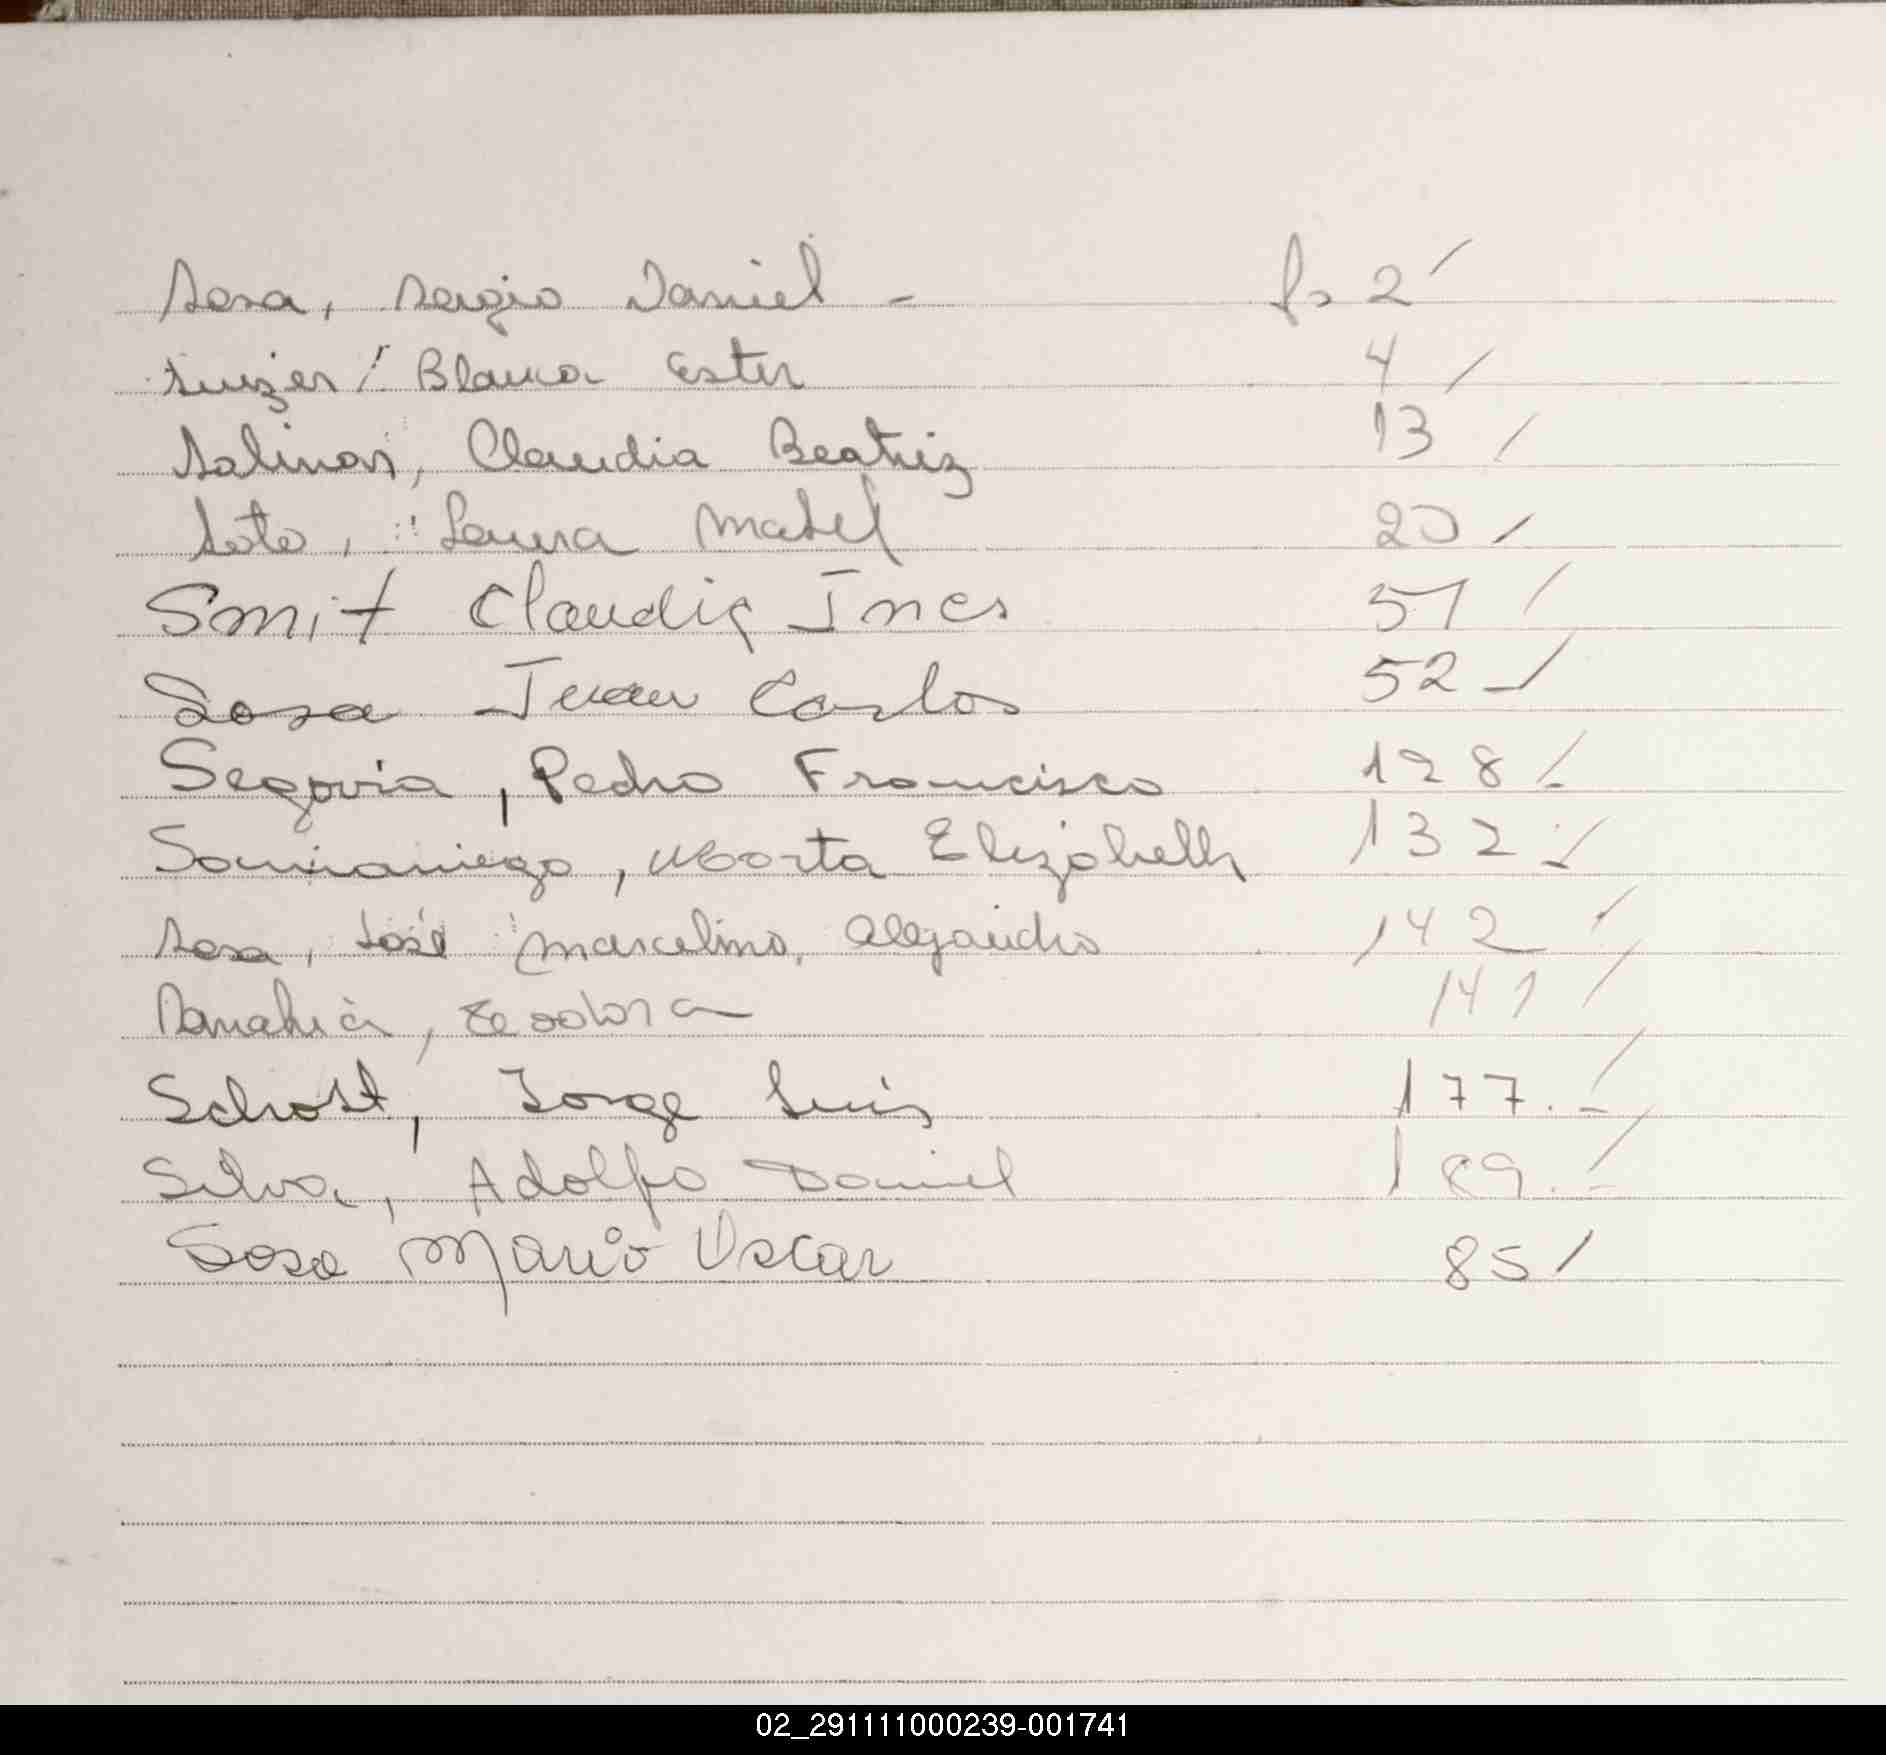 Sosa, Sergio Daniel - fs 2 /
Blanca Ester 4 /
Salinas, Claudia Beatriz 13 /
Soto, Laura Mabel 20 /
Smit Claudia Ines 51 /
Sosa Juan Carlos 52 /
Segovia, Pedro Francisco 128 /
Samaniego, Marta Elizabeth 132 /
Sosa, José Marcelino, Alejandro 142 /
Sanabria, Teodora 141 /
Schost, Jorge Luis 177.- /
Silva, Adolfo Daniel 189.- /
Sosa Mario Oscar 85 /
02_291111000239-001741